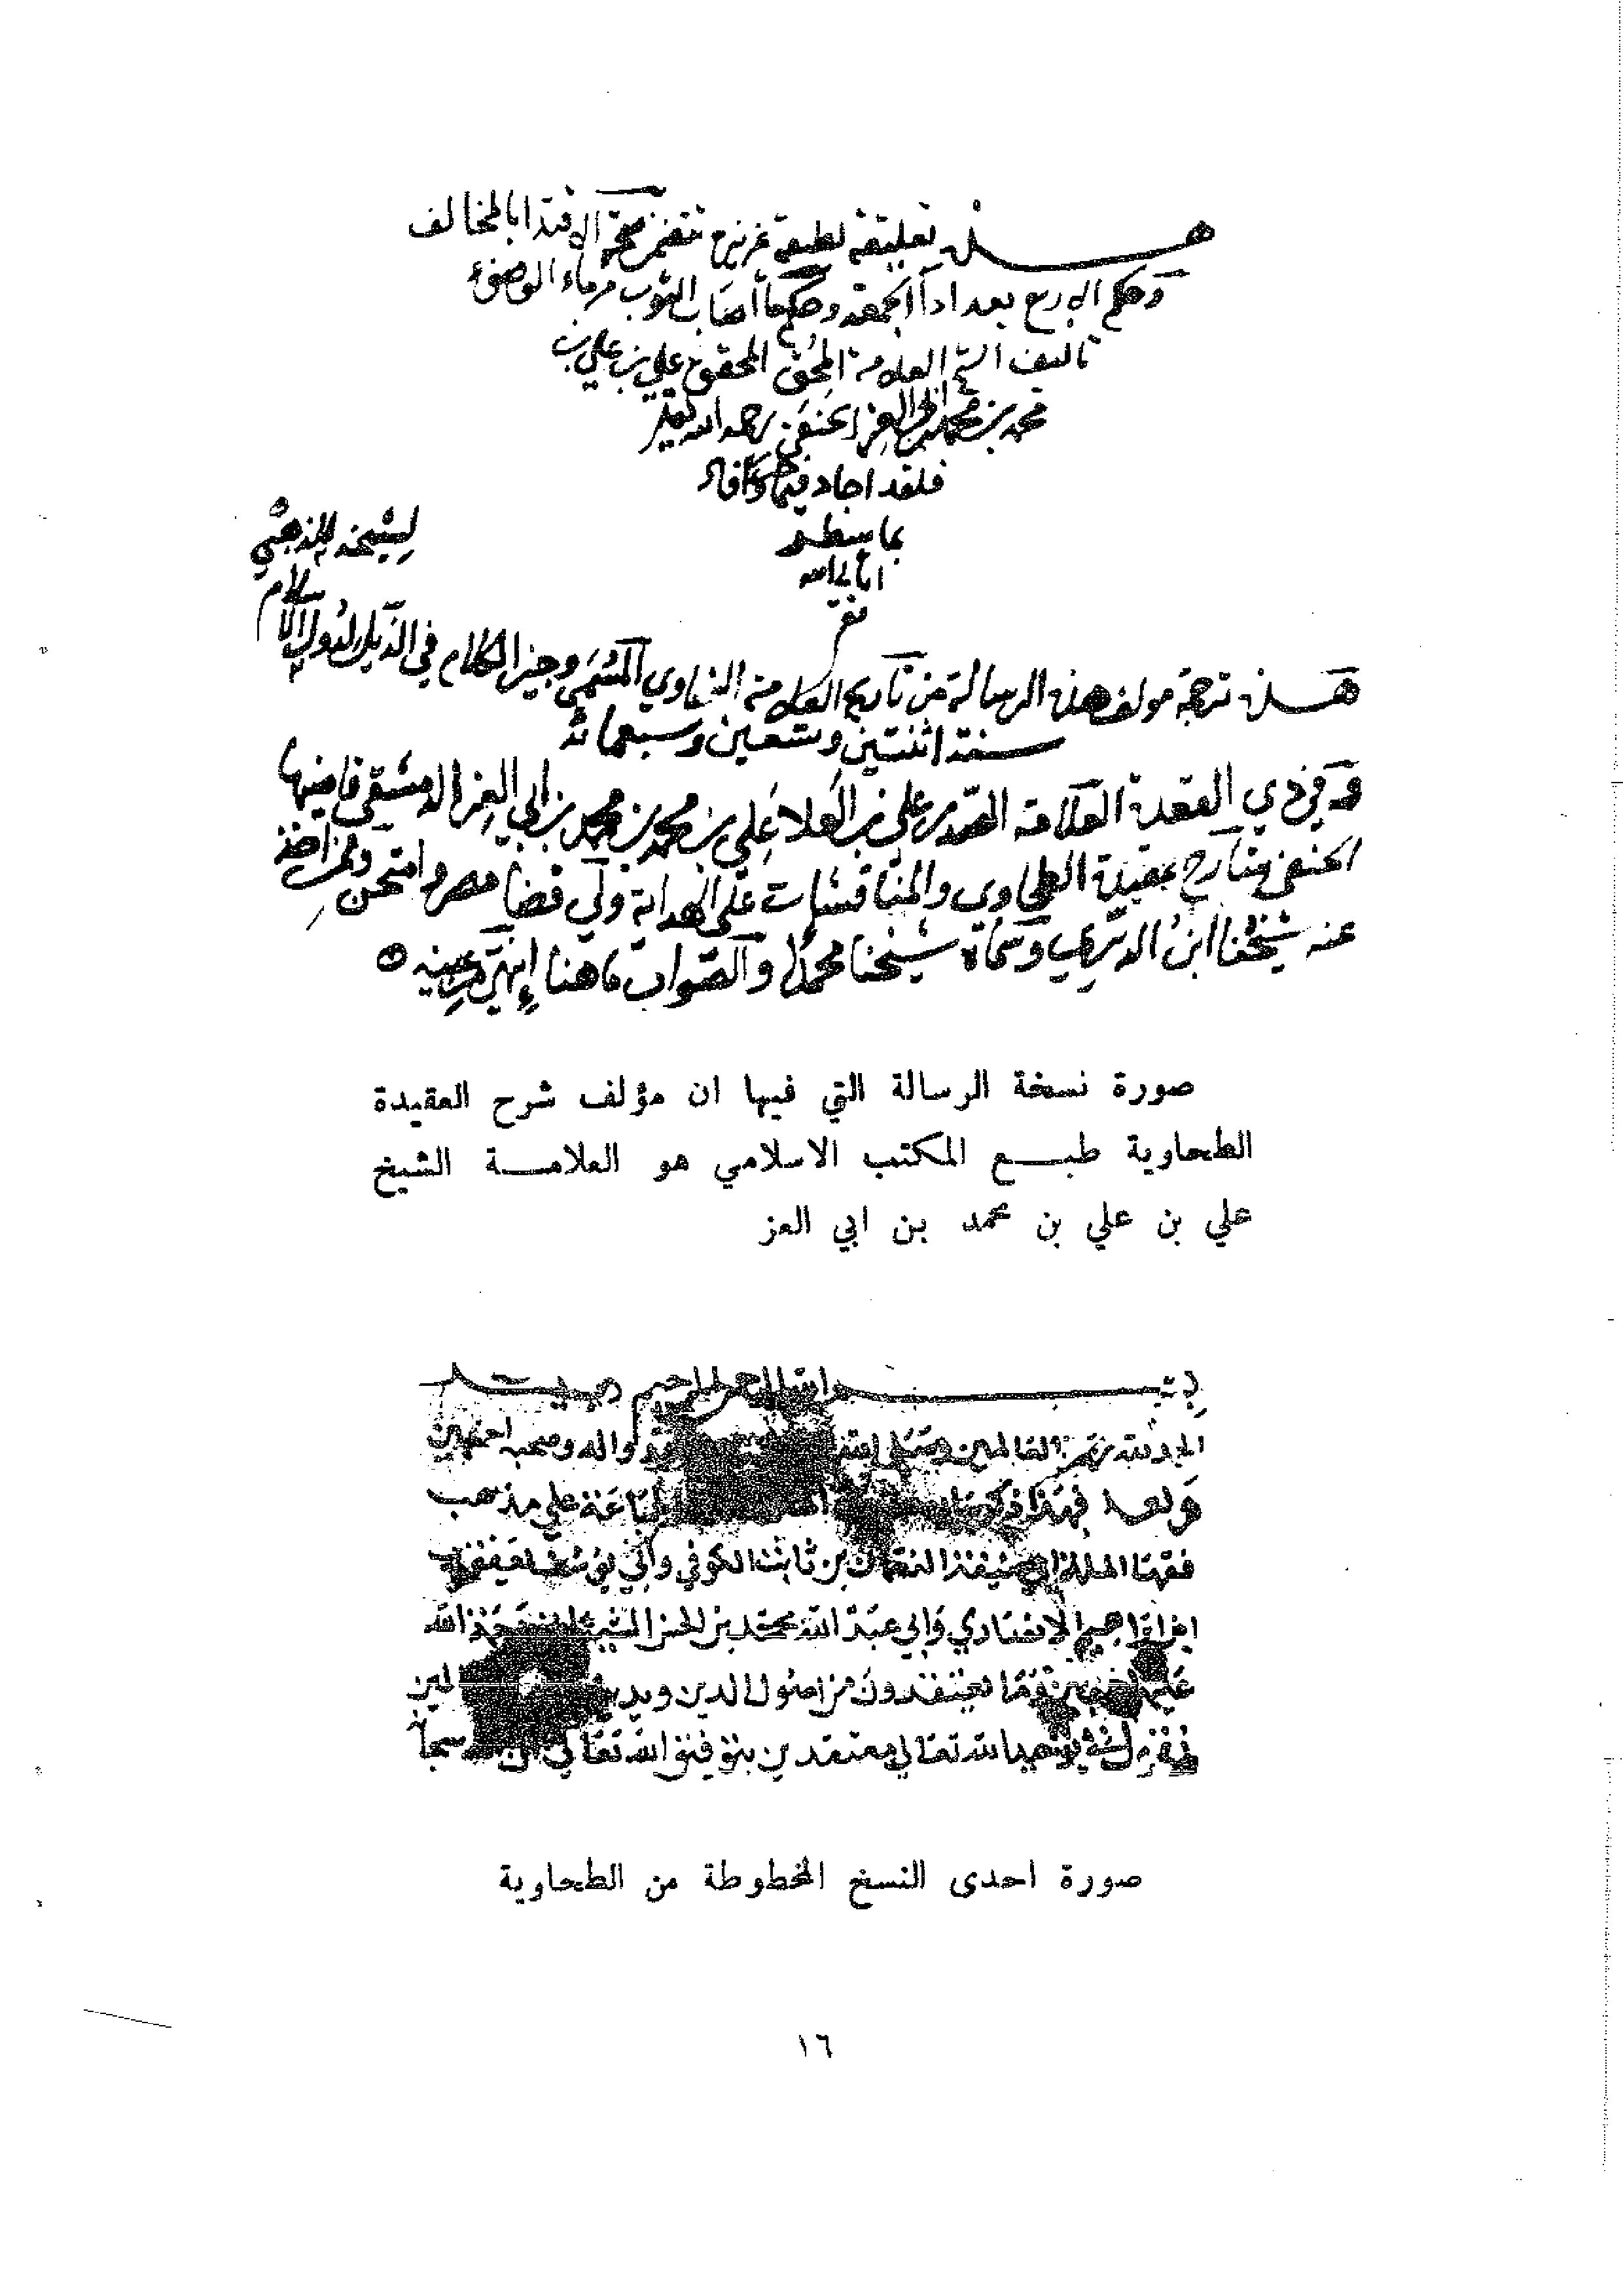 هذه تعليقة لطيفة عزيزة تتضمن صحة الاقتدا بالمخالف
وحكم الاربع بعد ادآ الجمعة وحكم ما أصاب الثوب من ماء الوضوء
تاليف الشيخ العلامة المحقق علي بن علي بن
محمد بن محمد بن ابي العز الحنفي رحمه الله
فلقد اجاد فيها وأفاد
بما سطر
لشيخه الذهبي
هذه ترجمة مولف هذه الرسالة من تاريخ العلامة السخاوي المسمى وجيز الكلام في الذيل لدول الاسلام
سنة اثنتين وتسعين وسبعمائة
وفي ذي القعدة العلامة الصدر علي بن العلا علي بن محمد بن محمد بن ابي العز الدمشقي قاضيها
الحنفي شارح عقيدة الطحاوي والمناقشات على الهداية ولي قضا مصر وامتحن وممن اخذ
عنه شيخنا ابن الديري وسماه شيخنا محمدا والصواب ما هنا إنتهى من عينه
صورة نسخة الرسالة التي فيها ان مؤلف شرح العقيدة
الطحاوية طبع المكتب الاسلامي هو العلامة الشيخ
علي بن علي بن محمد بن ابي العز
بسم الله الرحمن الرحيم
الحمد لله رب العالمين وصلى الله واله وصحبه اجمعين
وبعد فهذا ذكر الجماعة على مذهب
فقها الملة ابي حنيفة النعمان بن ثابت الكوفي وأبي يوسف يعقوب
ابن ابراهيم الانصاري وابي عبد الله محمد بن الحسن الشيباني الله
عليهم اجمعين وما يعتقدون من اصول الدين ويدينون
نقول في توحيد الله تعالى معتقدين بتوفيق الله تعالى ان
صورة احدى النسخ المخطوطة من الطحاوية
١٦